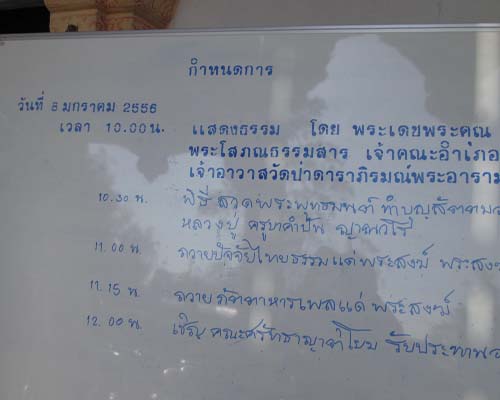 กำหนดการ
วันที่ 8 มกราคม 2556
เวลา 10.00 น. แสดงธรรม โดย พระเดชพระคุณ
พระโสภณธรรมสาร เจ้าคณะอำเภอ
เจ้าอาวาสวัดป่าดาราภิรมณ์พระอาราม
10.30 น. พิธี สวดพระพุทธมนต์ ทำบุญ
หลวงปู่ ครูบาคำปัน ญาณวิโร
11.00 น. ถวายปัจจัยไทยธรรมแด่ พระสงฆ์ พระสงฆ
11.15 น. ถวาย ภัตตาหารเพลแด่ พระสงฆ์
12.00 น. เชิญ คณะศรัทธาญาติโยม รับประทาน